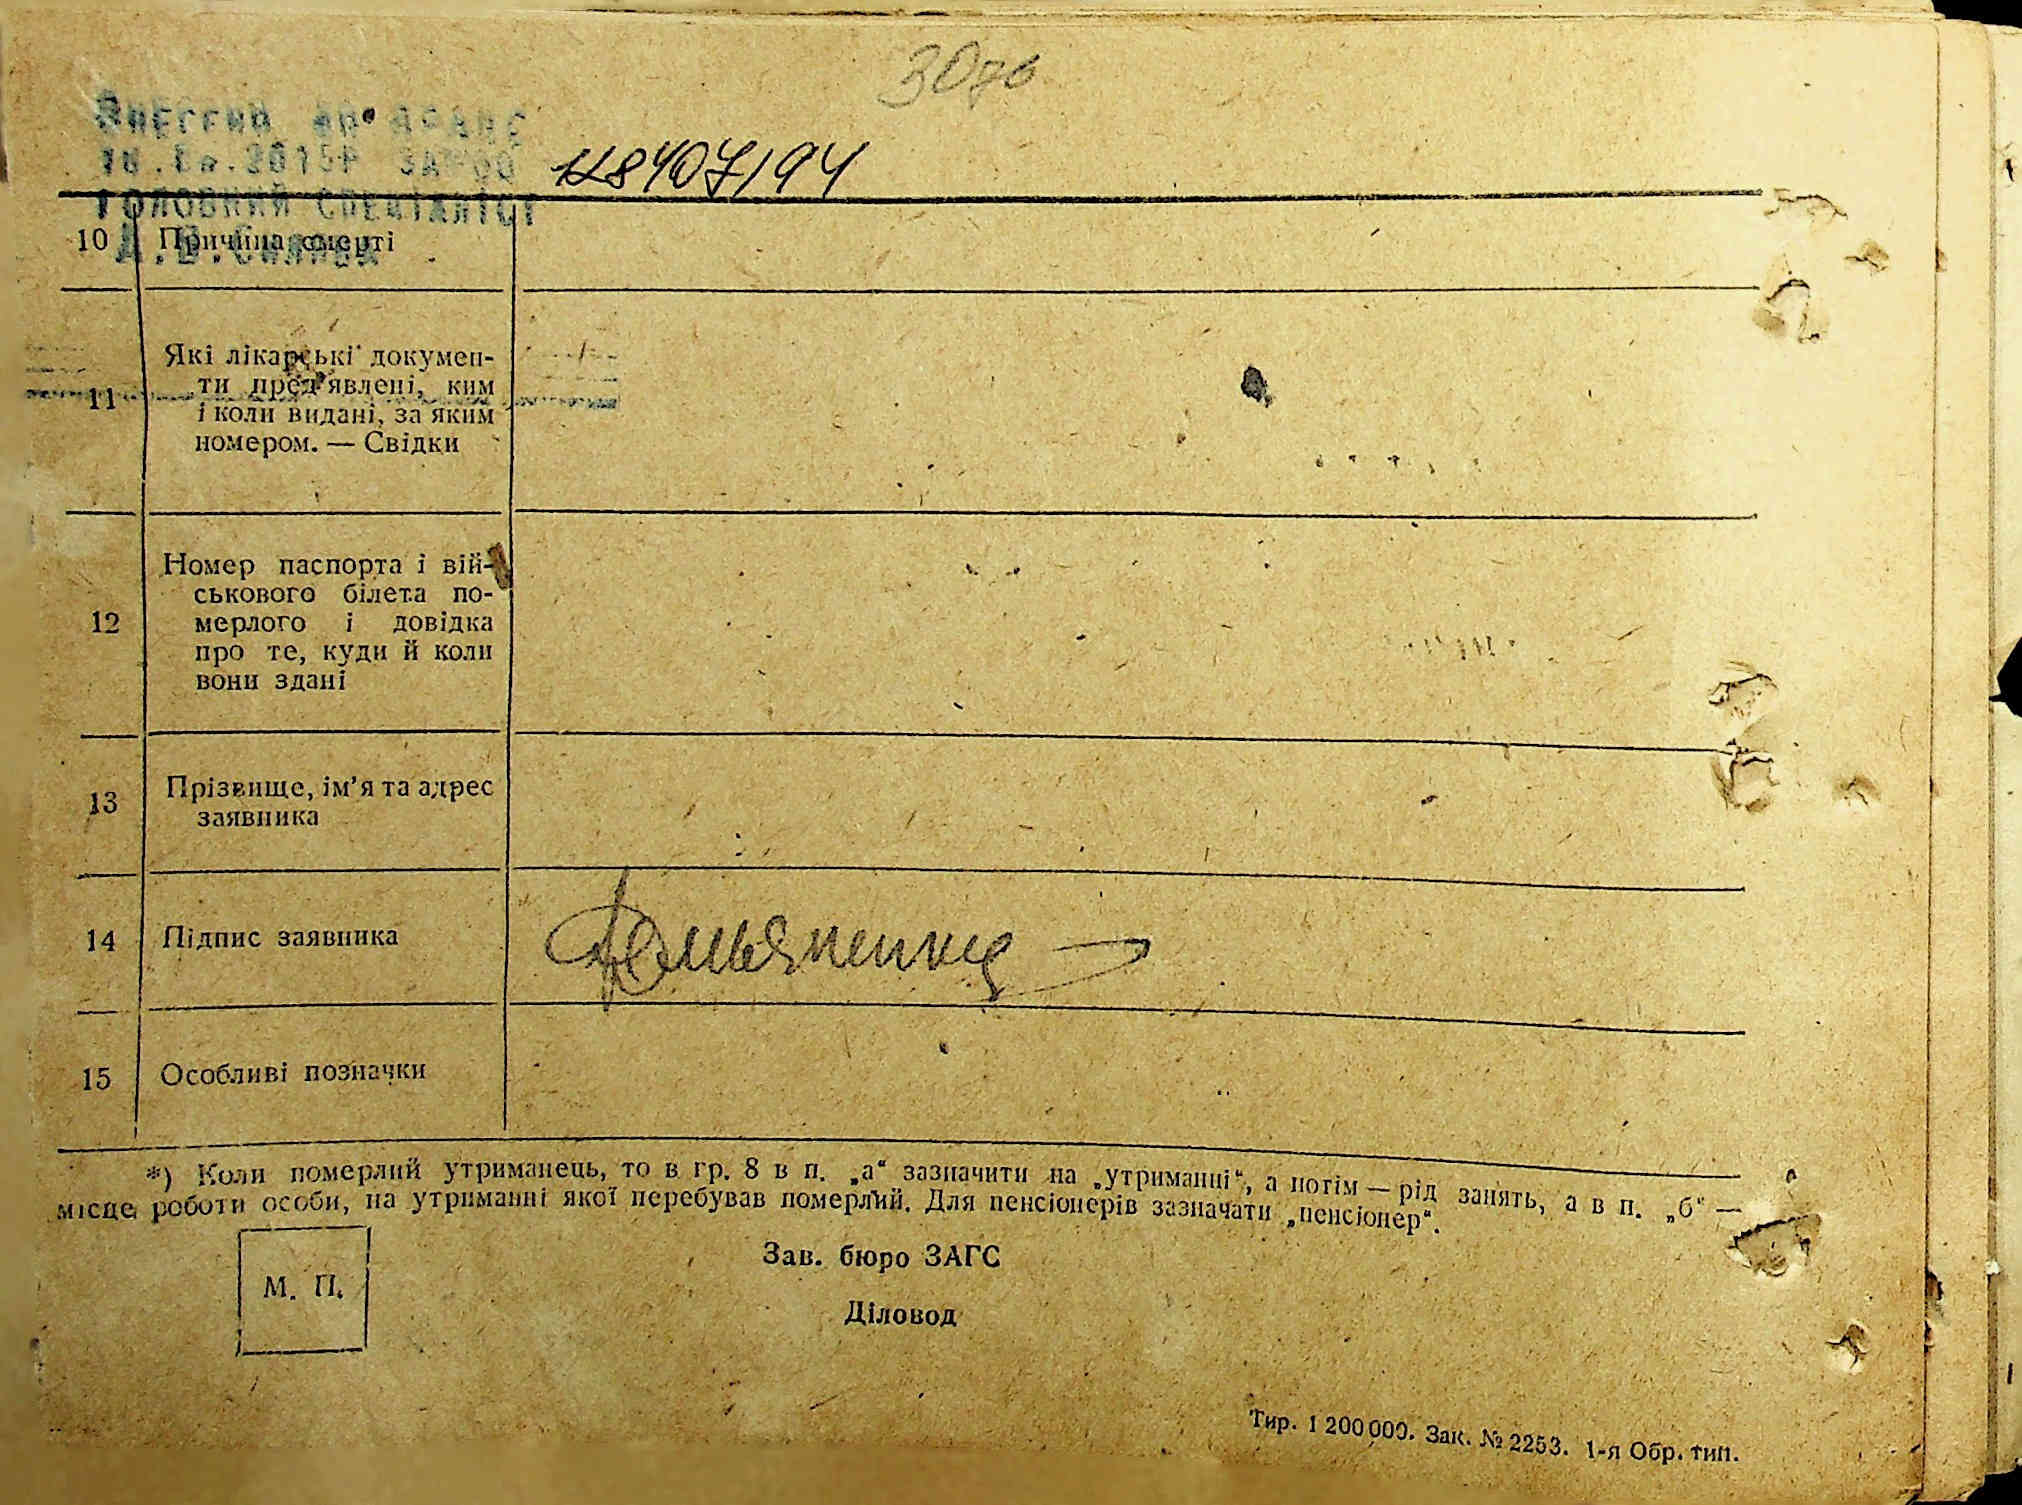 30 зв
118407194
ГОЛОВНИЙ СПЕЦІАЛІСТ
10 Причина смерті
11 Які лікарські докумен-
ти пред'явлені, ким
і коли видані, за яким
номером. — Свідки
12 Номер паспорта і вій-
ськового білета по-
мерлого і довідка
про те, куди й коли
вони здані
13 Прізвище, ім'я та адрес
заявника
14 Підпис заявника
15 Особливі позначки
*) Коли померлий утриманець, то в гр. 8 в п. „а“ зазначити на „утриманні“, а потім — рід занять, а в п. „б“ —
місце роботи особи, на утриманні якої перебував померлий. Для пенсіонерів зазначати „пенсіонер“.
М. П.
Зав. бюро ЗАГС
Діловод
Тир. 1 200 000. Зак. № 2253. 1-я Обр. тип.